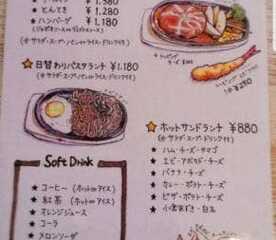 ¥1,380
とんてき ¥1,280
ハンバーグ ¥1,180
★日替わりパスタランチ ¥1,180
(※サラダ・スープ・パン or ライス・ドリンク付き)
★ホットサンドランチ ¥880
(※サラダ・スープ・ドリンク付き)
★ ハム・チーズ・トマト
★ エビ・アボカド・チーズ
★ バナナ・チーズ
★ カレー・ポテト・チーズ
★ ピザ・ポテト・チーズ
★ 小倉あずき・白玉
Soft Drink
★ コーヒー (ホット or アイス)
★ 紅茶 (ホット or アイス)
★ オレンジジュース
★ コーラ
★ メロンソーダ